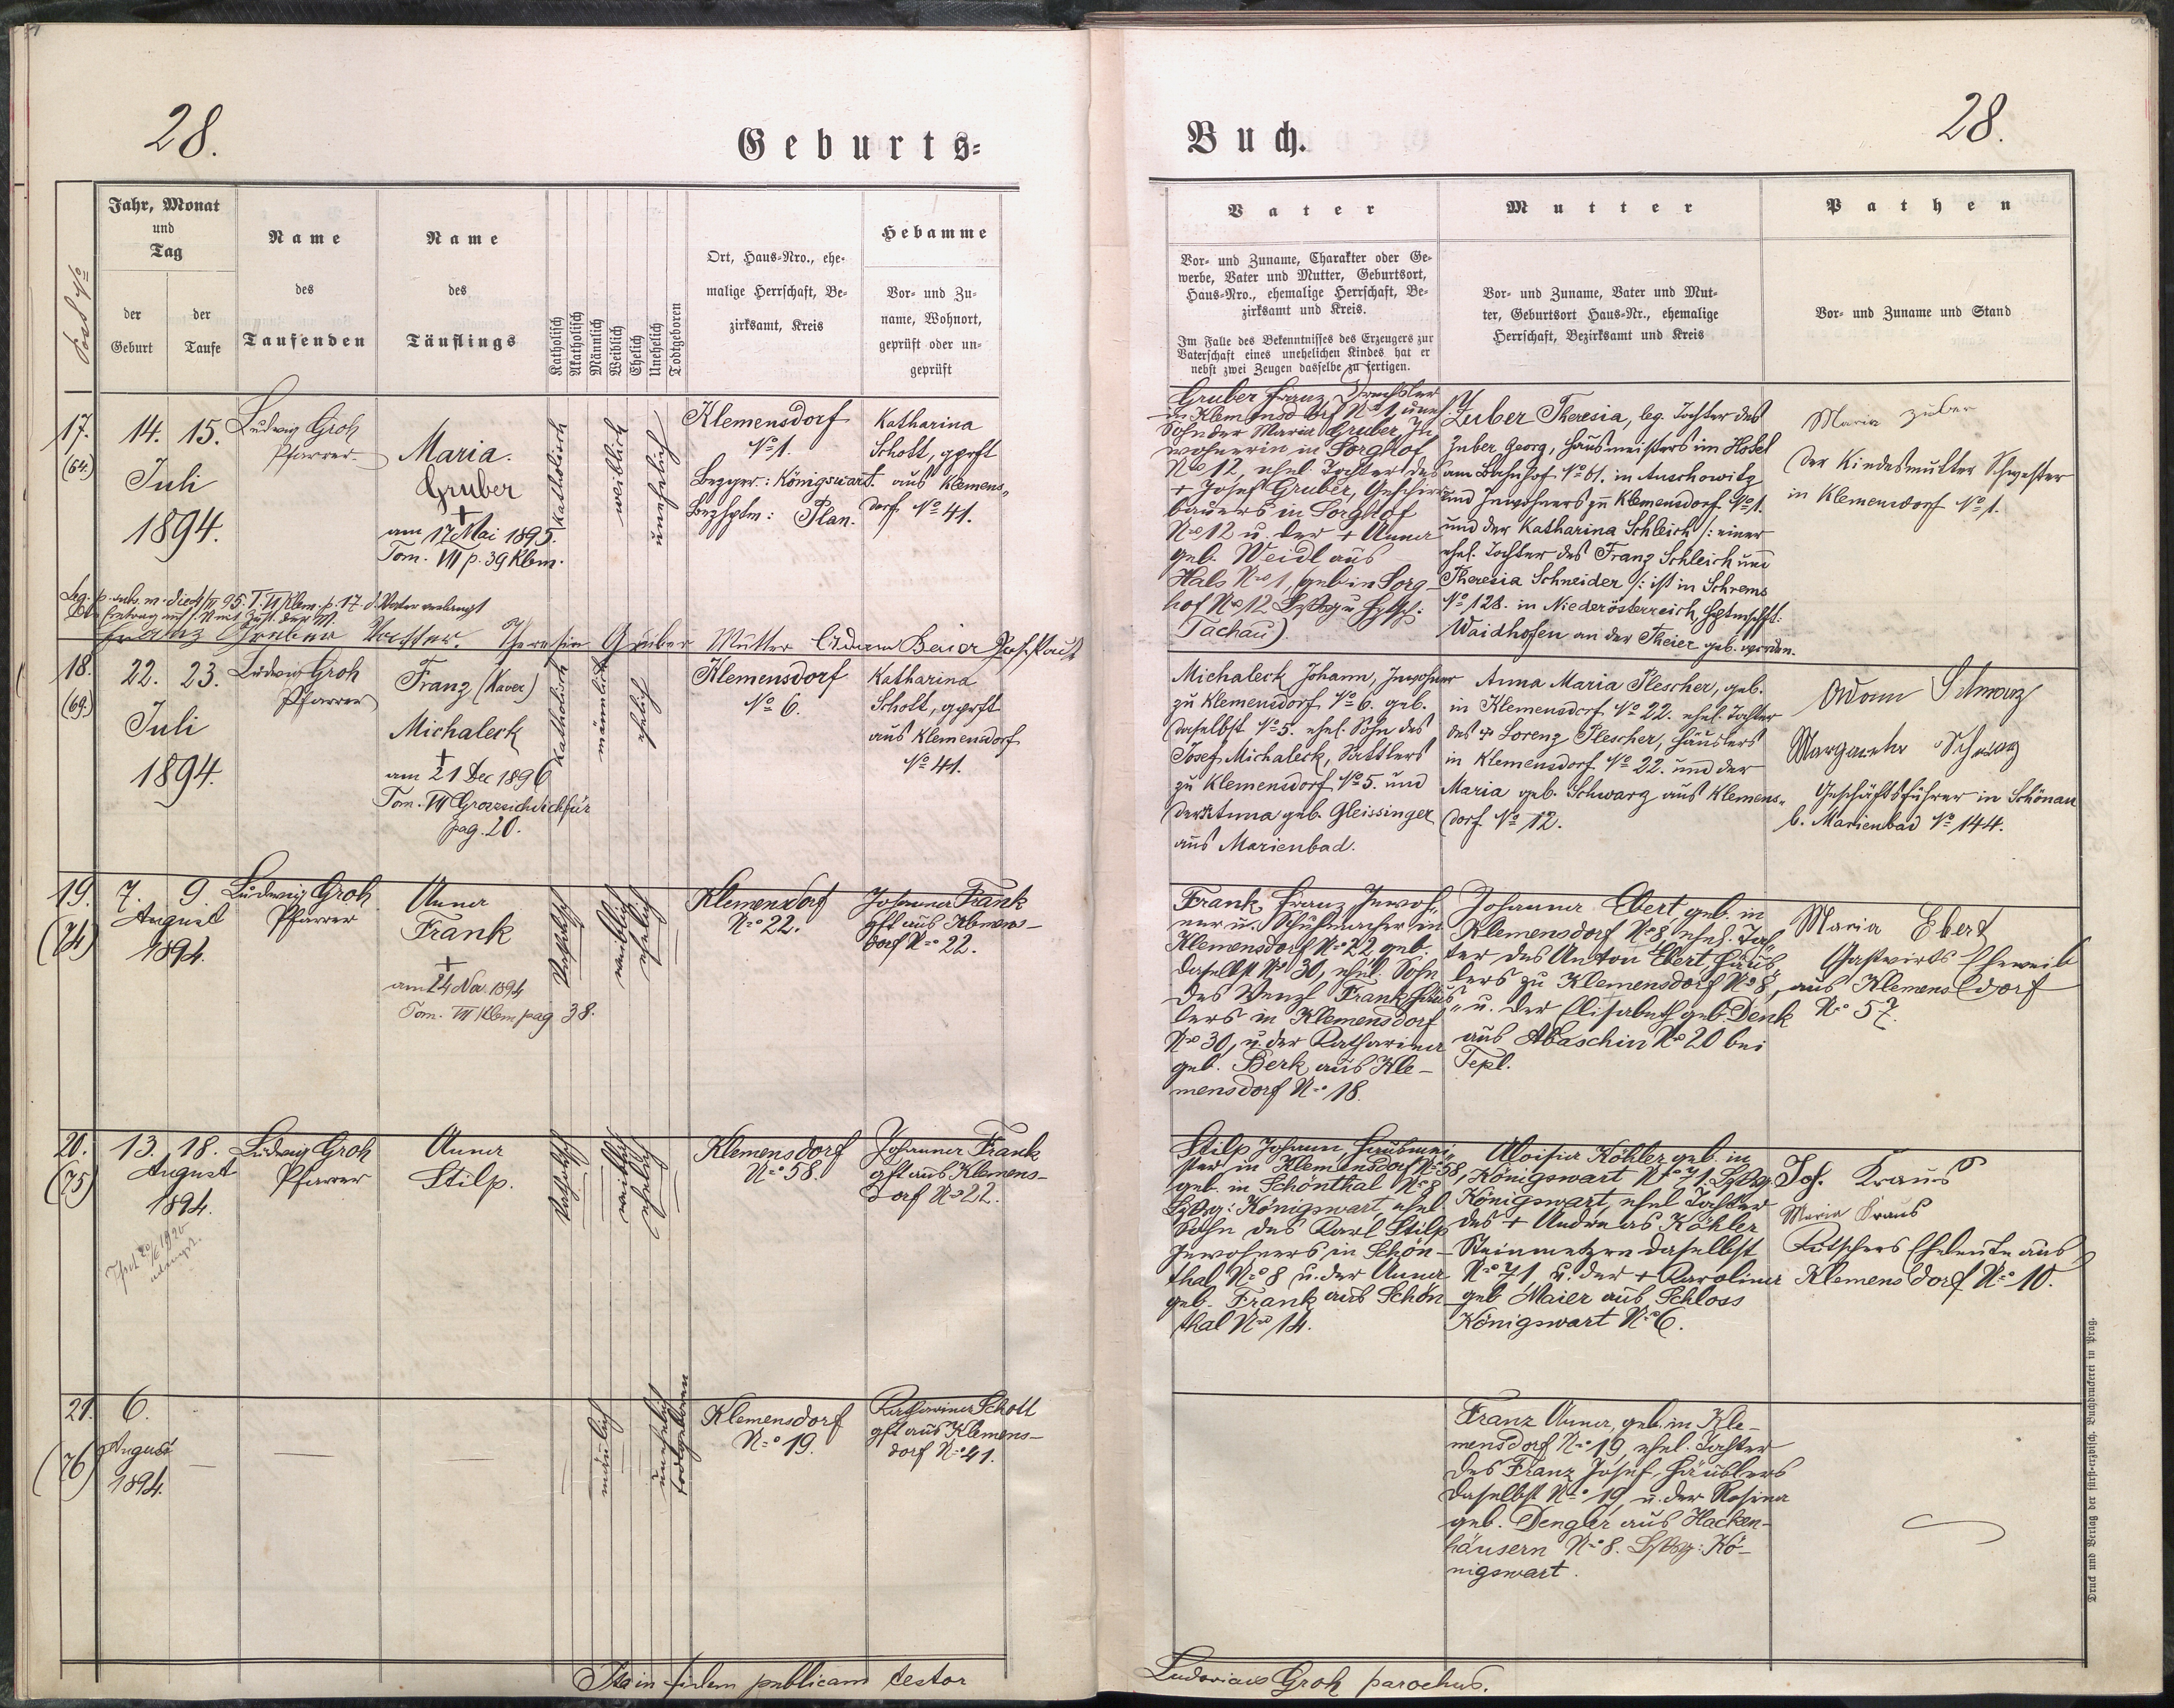 28.
Geburts=
Post No
Jahr, Monat
und
Tag
der
Geburt
der
Taufe
Name
des
Taufenden
Name
des
Täuflings
Katholisch
Akatholisch
Männlich
Weiblich
Ehelich
Unehelich
Todtgeboren
Ort, Haus=Nro., ehe-
malige Herrschaft, Be-
zirksamt, Kreis
Hebamme
Vor= und Zu-
name, Wohnort,
geprüft oder un-
geprüft
17.
(64.)
14. 15.
Juli
1894.
Ludwig Groh
Pfarrer
Maria.
Gruber
+
am 17 Mai 1895.
Tom. VII p. 39 Klem.
katholisch
weiblich
unehelich
Klemensdorf
No 1.
Bezger.: Königswart.
Bezhptm: Plan.
Katharina
Schott, gprft
aus Klemens-
dorf No 41.
Franz Gruber Vater. Theresia Gruber Mutter
18.
(69.)
22. 23.
Juli
1894.
Ludwig Groh
Pfarrer
Franz (Xaver)
Michaleck
+
am 21 Dec 1896
Tom. VII Grossichdichfür
pag. 20.
katholisch
männlich
ehelich
Klemensdorf
No 6.
Katharina
Schott, gprft
aus Klemensdorf
No 41.
19.
(74)
7. 9.
August
1894.
Ludwig Groh
Pfarrer
Anna
Frank
+
am 24 Nov. 1894
Tom. VII Klem pag 38.
katholisch
weiblich
ehelich
Klemensdorf
No 22.
Johanna Frank
gft aus Klemens-
dorf No 22.
20.
(75)
13. 18.
August
1894.
Ludwig Groh
Pfarrer
Anna
Stilp.
katholisch
weiblich
ehelich
Klemensdorf
No 58.
Johanna Frank
gft aus Klemens-
dorf No 22.
21.
(76)
6.
August
1894.
männlich
unehelich
todtgeboren
Klemensdorf
No 19.
Katharina Schott
gft aus Klemens-
dorf No 41.
Ita in fidem publicam testor
Buch.
28.
Vater
Vor= und Zuname, Charakter oder Ge-
werbe, Vater und Mutter, Geburtsort,
Haus=Nro., ehemalige Herrschaft, Be-
zirksamt und Kreis.
Im Falle des Bekenntnisses des Erzeugers zur
Vaterschaft eines unehelichen Kindes hat er
nebst zwei Zeugen dasselbe zu fertigen.
Mutter
Vor= und Zuname, Vater und Mut-
ter, Geburtsort Haus=Nr., ehemalige
Herrschaft, Bezirksamt und Kreis
Pathen
Vor= und Zuname und Stand
Gruber Franz, Drechsler
in Klemensdorf No 1, unehl.
Sohn der Maria Gruber, In-
wohnerin in Sorghof
No 12, ehel. Tochter des
+ Josef Gruber,
bauers in Sorghof
No 12 u. der + Anna
geb. Weidl aus
Hals No 1, geb. in Sorg-
hof No 12
Tachau).
Zuber Theresia, leg. Tochter des
Zuber Georg, Hausmeisters im Hotel
am Bahnhof No 61. in Auschowitz
und Inwohners zu Klemensdorf No 1.
und der Katharina Schleich /: einer
ehel. Tochter des Franz Schleich und
Theresia Schneider /: ist in Schrems
No 128. in Niederösterreich, Hptmschft:
Waidhofen an der Theier geb. worden.
Maria Zuber
der Kindesmutter Schwester
in Klemensdorf No 1.
Michaleck Johann, Inwohner
zu Klemensdorf No 6. geb.
daselbst No 5. ehel. Sohn des
Josef Michaleck, Sattlers
zu Klemensdorf No 5. und
der + Anna geb. Gleissinger
aus Marienbad.
Anna Maria Plescher, geb.
in Klemensdorf No 22. ehel. Tochter
des + Lorenz Plescher, Häuslers
in Klemensdorf No 22. und der
Maria geb. Schwarz aus Klemens-
dorf No 12.
Adam Schwarz
Margaretha Schwarz
Geschäftsführer in Schönau
b. Marienbad No 144.
Frank Franz, Inwoh-
ner u. Schuhmacher in
Klemensdorf No 22 geb.
daselbst No 30, ehel. Sohn
des Wenzl Frank Häus-
lers in Klemensdorf
No 30, u. der Katharina
geb. Berk aus Kle-
mensdorf No 18.
Johanna Ebert, geb. in
Klemensdorf No 8, ehel. Toch-
ter des Anton Ebert, Häus-
lers zu Klemensdorf No 8,
u. der Elisabeth geb. Denk
aus Abaschin No 20 bei
Tepl.
Maria Ebert
Gastwirts Eheweib
aus Klemensdorf
No 57.
Stilp Johann Hausmei-
ster in Klemensdorf No 58,
geb. in Schönthal No 8
Bzbzg: Königswart, ehel.
Sohn des Karl Stilp
Inwohners in Schön-
thal No 8 u. der Anna
geb. Frank aus Schön-
thal No 14.
Aloisia Köhler geb. in
Königswart No 71. Bzbzg.
Königswart, ehel. Tochter
des + Andreas Köhler
Steinmetzen daselbst
No 71, u. der + Karolina
geb Maier aus Schloss
Königswart No 6.
Jos. Kraus
Maria Kraus
Kutschers Eheleute aus
Klemensdorf No 10.
Franz Anna, geb. in Kle-
mensdorf No 19, ehel. Tochter
des Franz Josef, Häuslers
daselbst No 19, u. der Rosina
geb. Dengler aus Hacken-
häusern No 8. Bzbzg: Kö-
nigswart.
Ludovicus Groh parochus.
Druck und Verlag der fürst=erzbisch. Buchdruckerei in Prag.